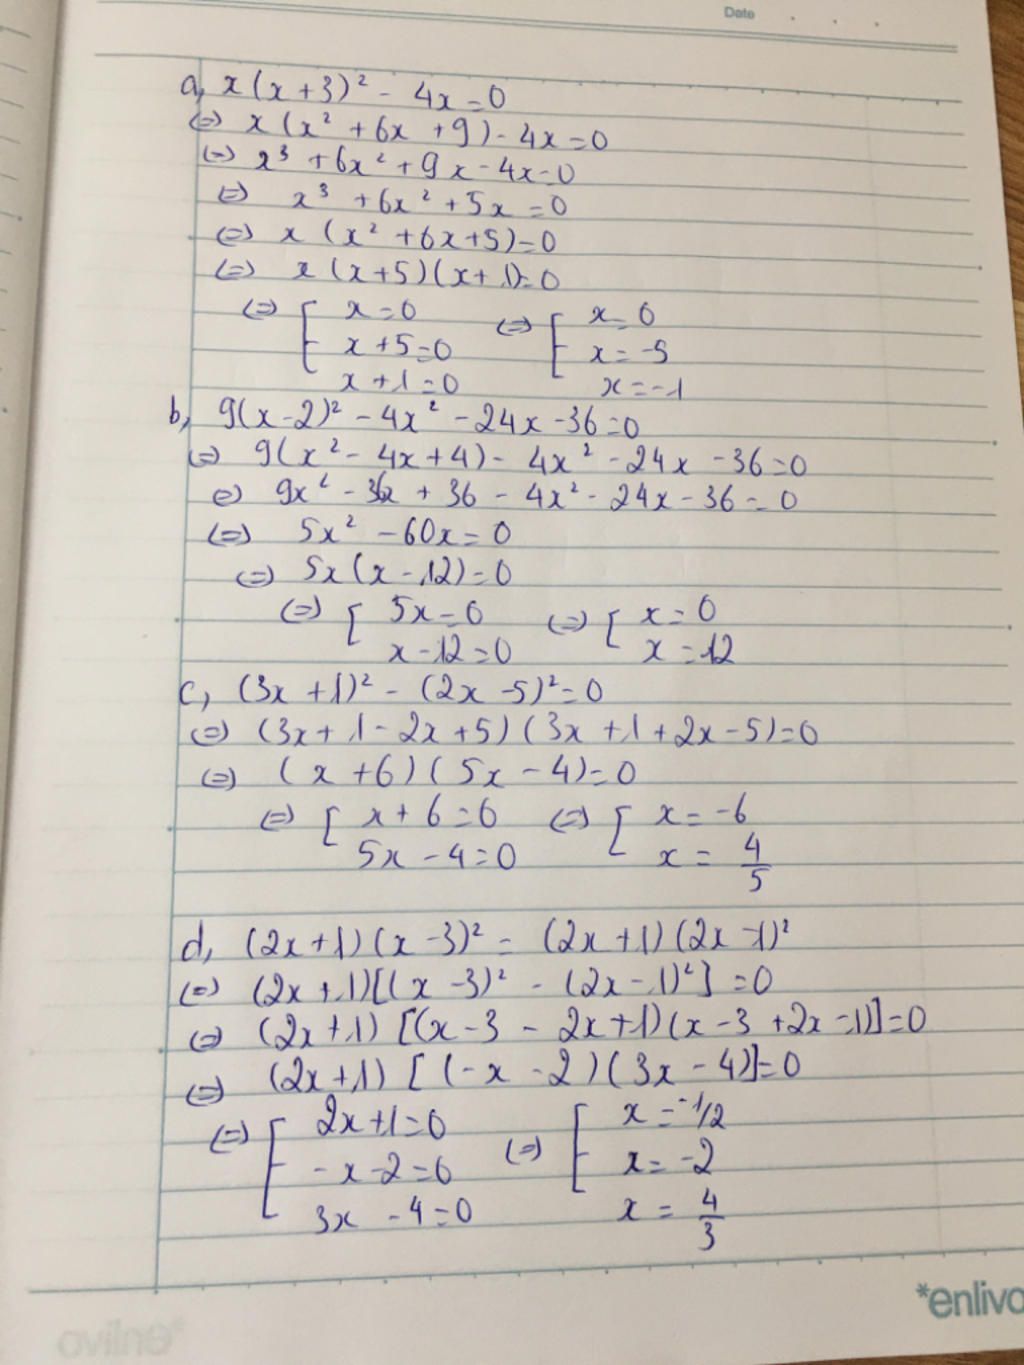 Date
a, x(x+3)² - 4x=0
(=) x(x² +6x +9) - 4x=0
(=) x³ +6x² +9x-4x=0
(=) x³ +6x² +5x=0
(=) x (x² +6x+5)=0
(=) x (x+5)(x+1)=0
(=) [ x=0 (=) [ x=0
x+5=0 x=-5
x+1=0 x=-1
b, 9(x-2)² -4x² -24x -36=0
(=) 9(x² - 4x+4) - 4x² -24x -36=0
(=) 9x² - 36x + 36 - 4x² - 24x - 36 = 0
(=) 5x² -60x = 0
(=) 5x(x-12)=0
(=) [ 5x=0 (=) [ x=0
x-12=0 x=12
c, (3x+1)² - (2x-5)²=0
(=) (3x+1-2x+5)(3x+1+2x-5)=0
(=) (x+6)(5x-4)=0
(=) [ x+6=0 (=) [ x=-6
5x-4=0 x= 4/5
d, (2x+1)(x-3)² = (2x+1)(2x-1)²
(=) (2x+1)[(x-3)² - (2x-1)²] =0
(=) (2x+1) [(x-3 - 2x+1)(x-3 +2x-1)]=0
(=) (2x+1) [(-x-2)(3x-4)]=0
(=) [ 2x+1=0 (=) [ x=-1/2
-x-2=0 x=-2
3x-4=0 x= 4/3
*enlivo